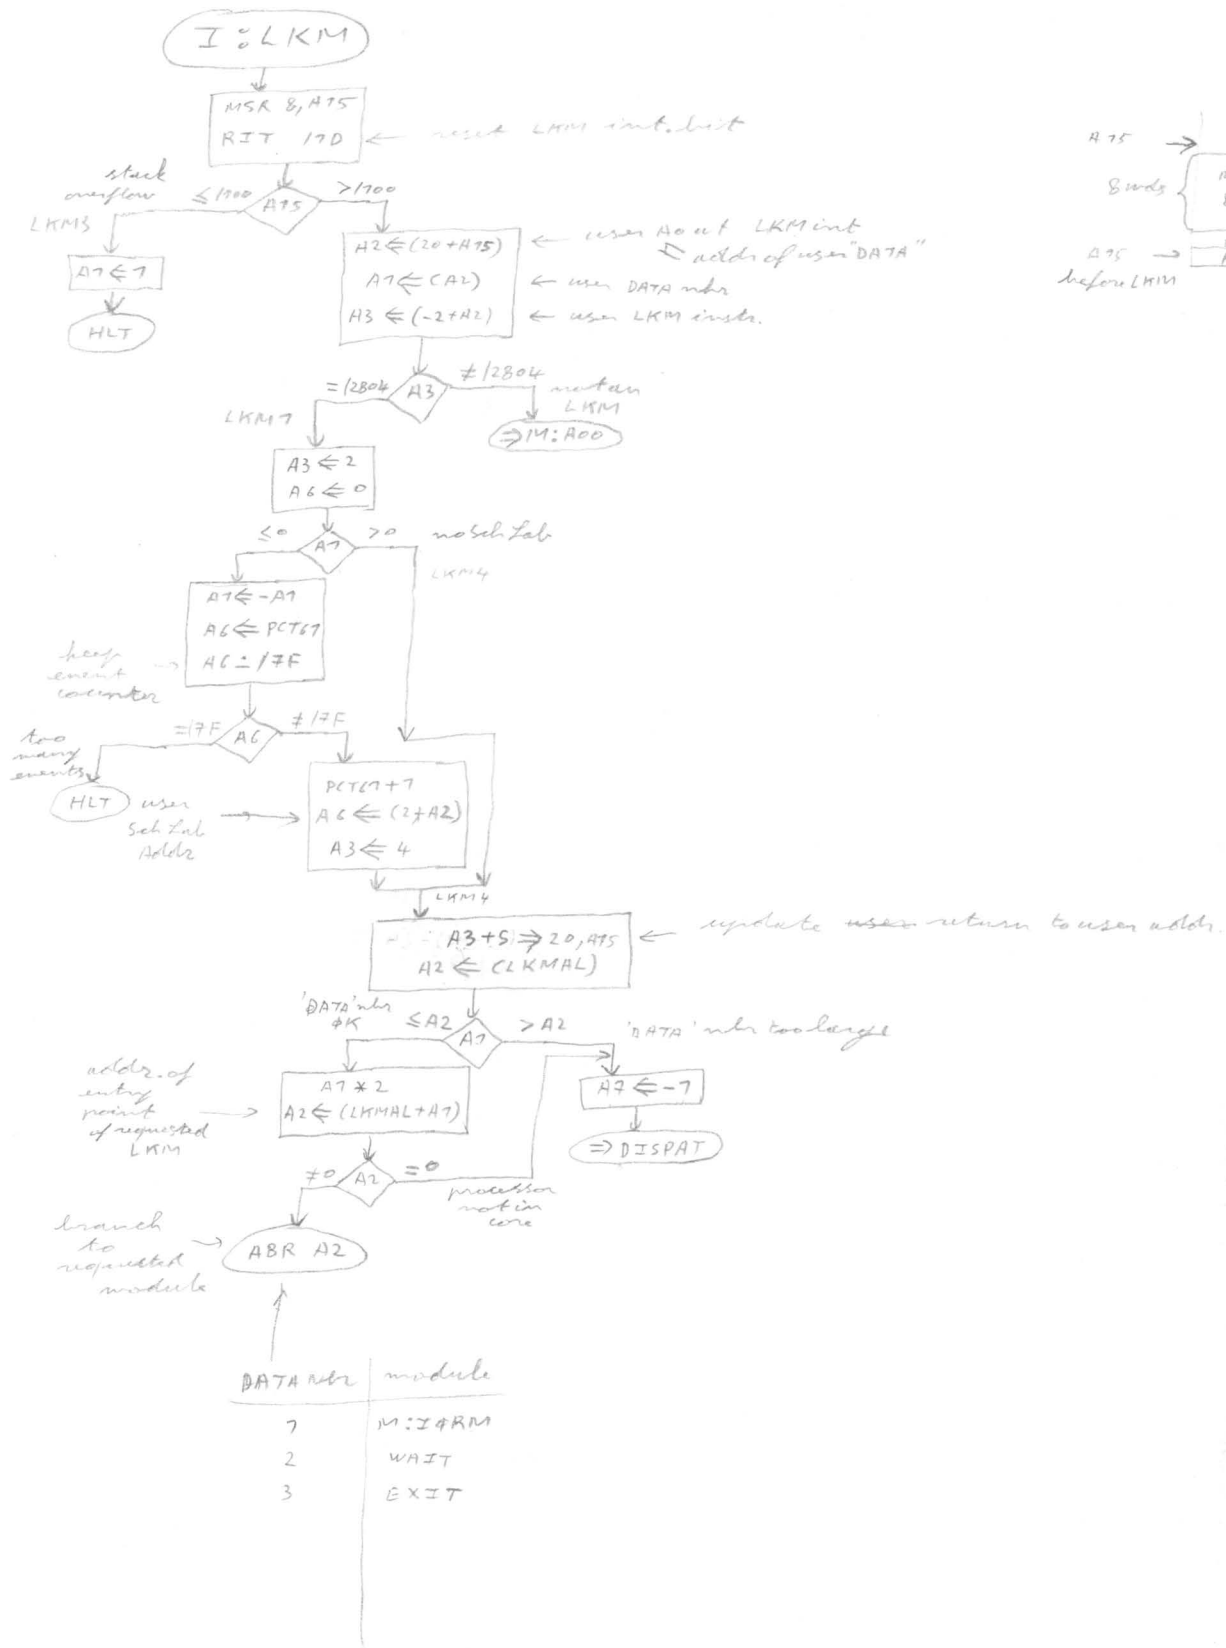 I:LKM
MSR 8, A15
RIT /1D
← reset LKM int. bit
stack
overflow
≤/100
A15
>/100
LKM3
A1⇐1
HLT
A2⇐(20+A15)
← user A0 at LKM int
⇐ addr of user "DATA"
A1⇐(A2)
← user DATA nbr
A3⇐(-2+A2)
← user LKM instr.
=/2804
A3
≠/2804
not an
LKM
⇒M:A00
LKM1
A3⇐2
A6⇐0
≤0
A1
>0
no Sch Lab
LKM4
A1⇐-A1
A6⇐PCT61
A6÷/7F
keep
event
counter
=/7F
A6
≠/7F
too
many
events
HLT
user
Sch Lab
Addr
PCT61+1
A6⇐(2+A2)
A3⇐4
LKM4
A3+S⇒20,A15
← update user return to user addr.
A2⇐(LKMAL)
'DATA' nbr
ΦK
≤A2
A1
>A2
'DATA' nbr too large
addr. of
entry
point
of requested
LKM
A1*2
A2⇐(LKMAL+A1)
A7⇐-1
⇒DISPAT
≠0
A2
=0
processor
not in
core
branch
to
requested
module
ABR A2
DATA nbr module
1 M:IΦRM
2 WAIT
3 EXIT
A15 →
8 wds
A15 →
before LKM